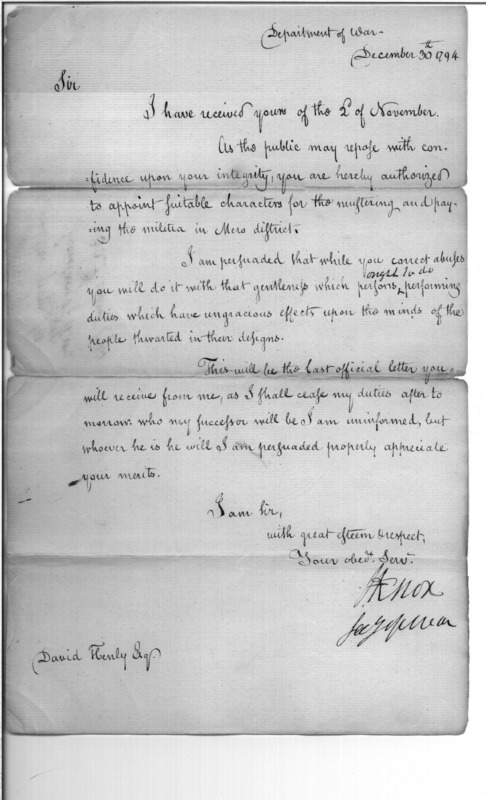 Department of War
December 30th 1794
Sir
I have received yours of the 2d of November.
As the public may repose with con-
fidence upon your integrity, you are hereby authorized
to appoint suitable characters for the mustering and pay-
ing the militia in Mero district.
I am persuaded that while you correct abuses
you will do it with that gentleness which persons ought to do performing
duties which have ungracious effects upon the minds of the
people thwarted in their designs.
This will be the last official letter you
will receive from me, as I shall cease my duties after to
morrow. who my successor will be I am uninformed, but
whoever he is he will I am persuaded properly appreciate
your merits.
I am Sir,
with great esteem & respect,
Your obedt. Servt.
HKnox
Secy of War
David Henly Esq.